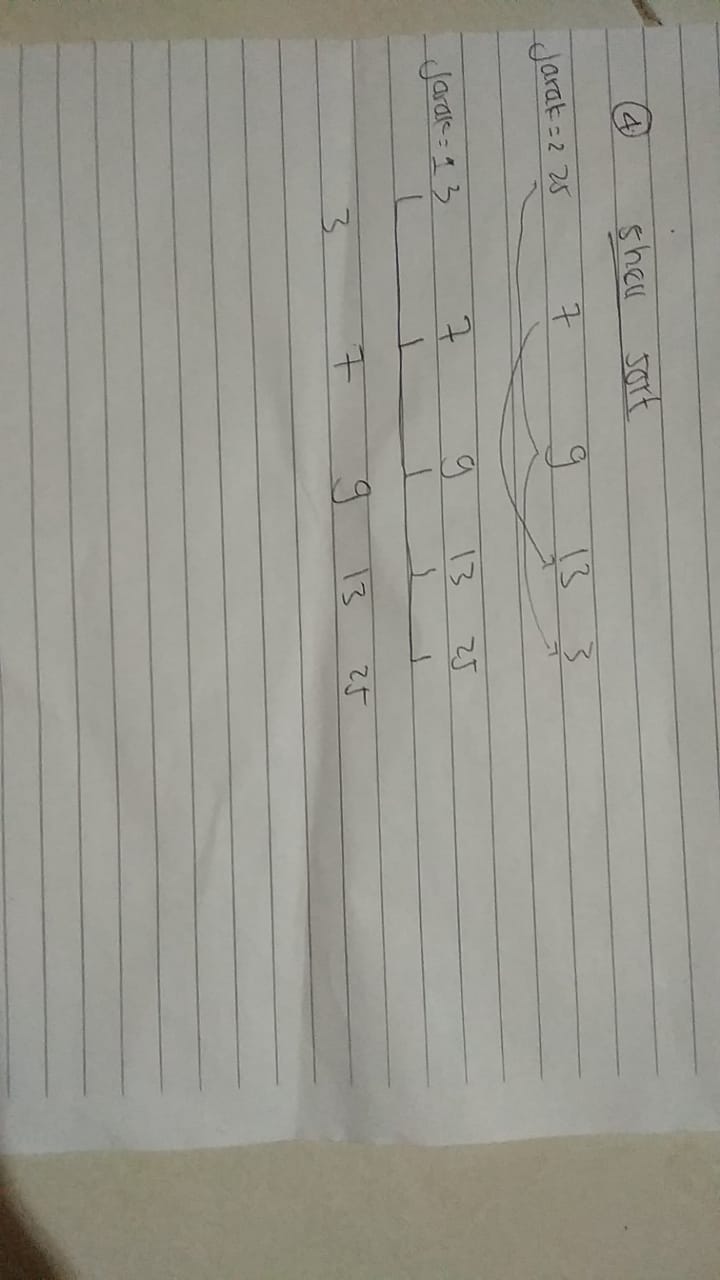 ④ Shell sort
Jarak = 2 25 7 9 13 3
Jarak = 1 3 7 9 13 25
3 7 9 13 25